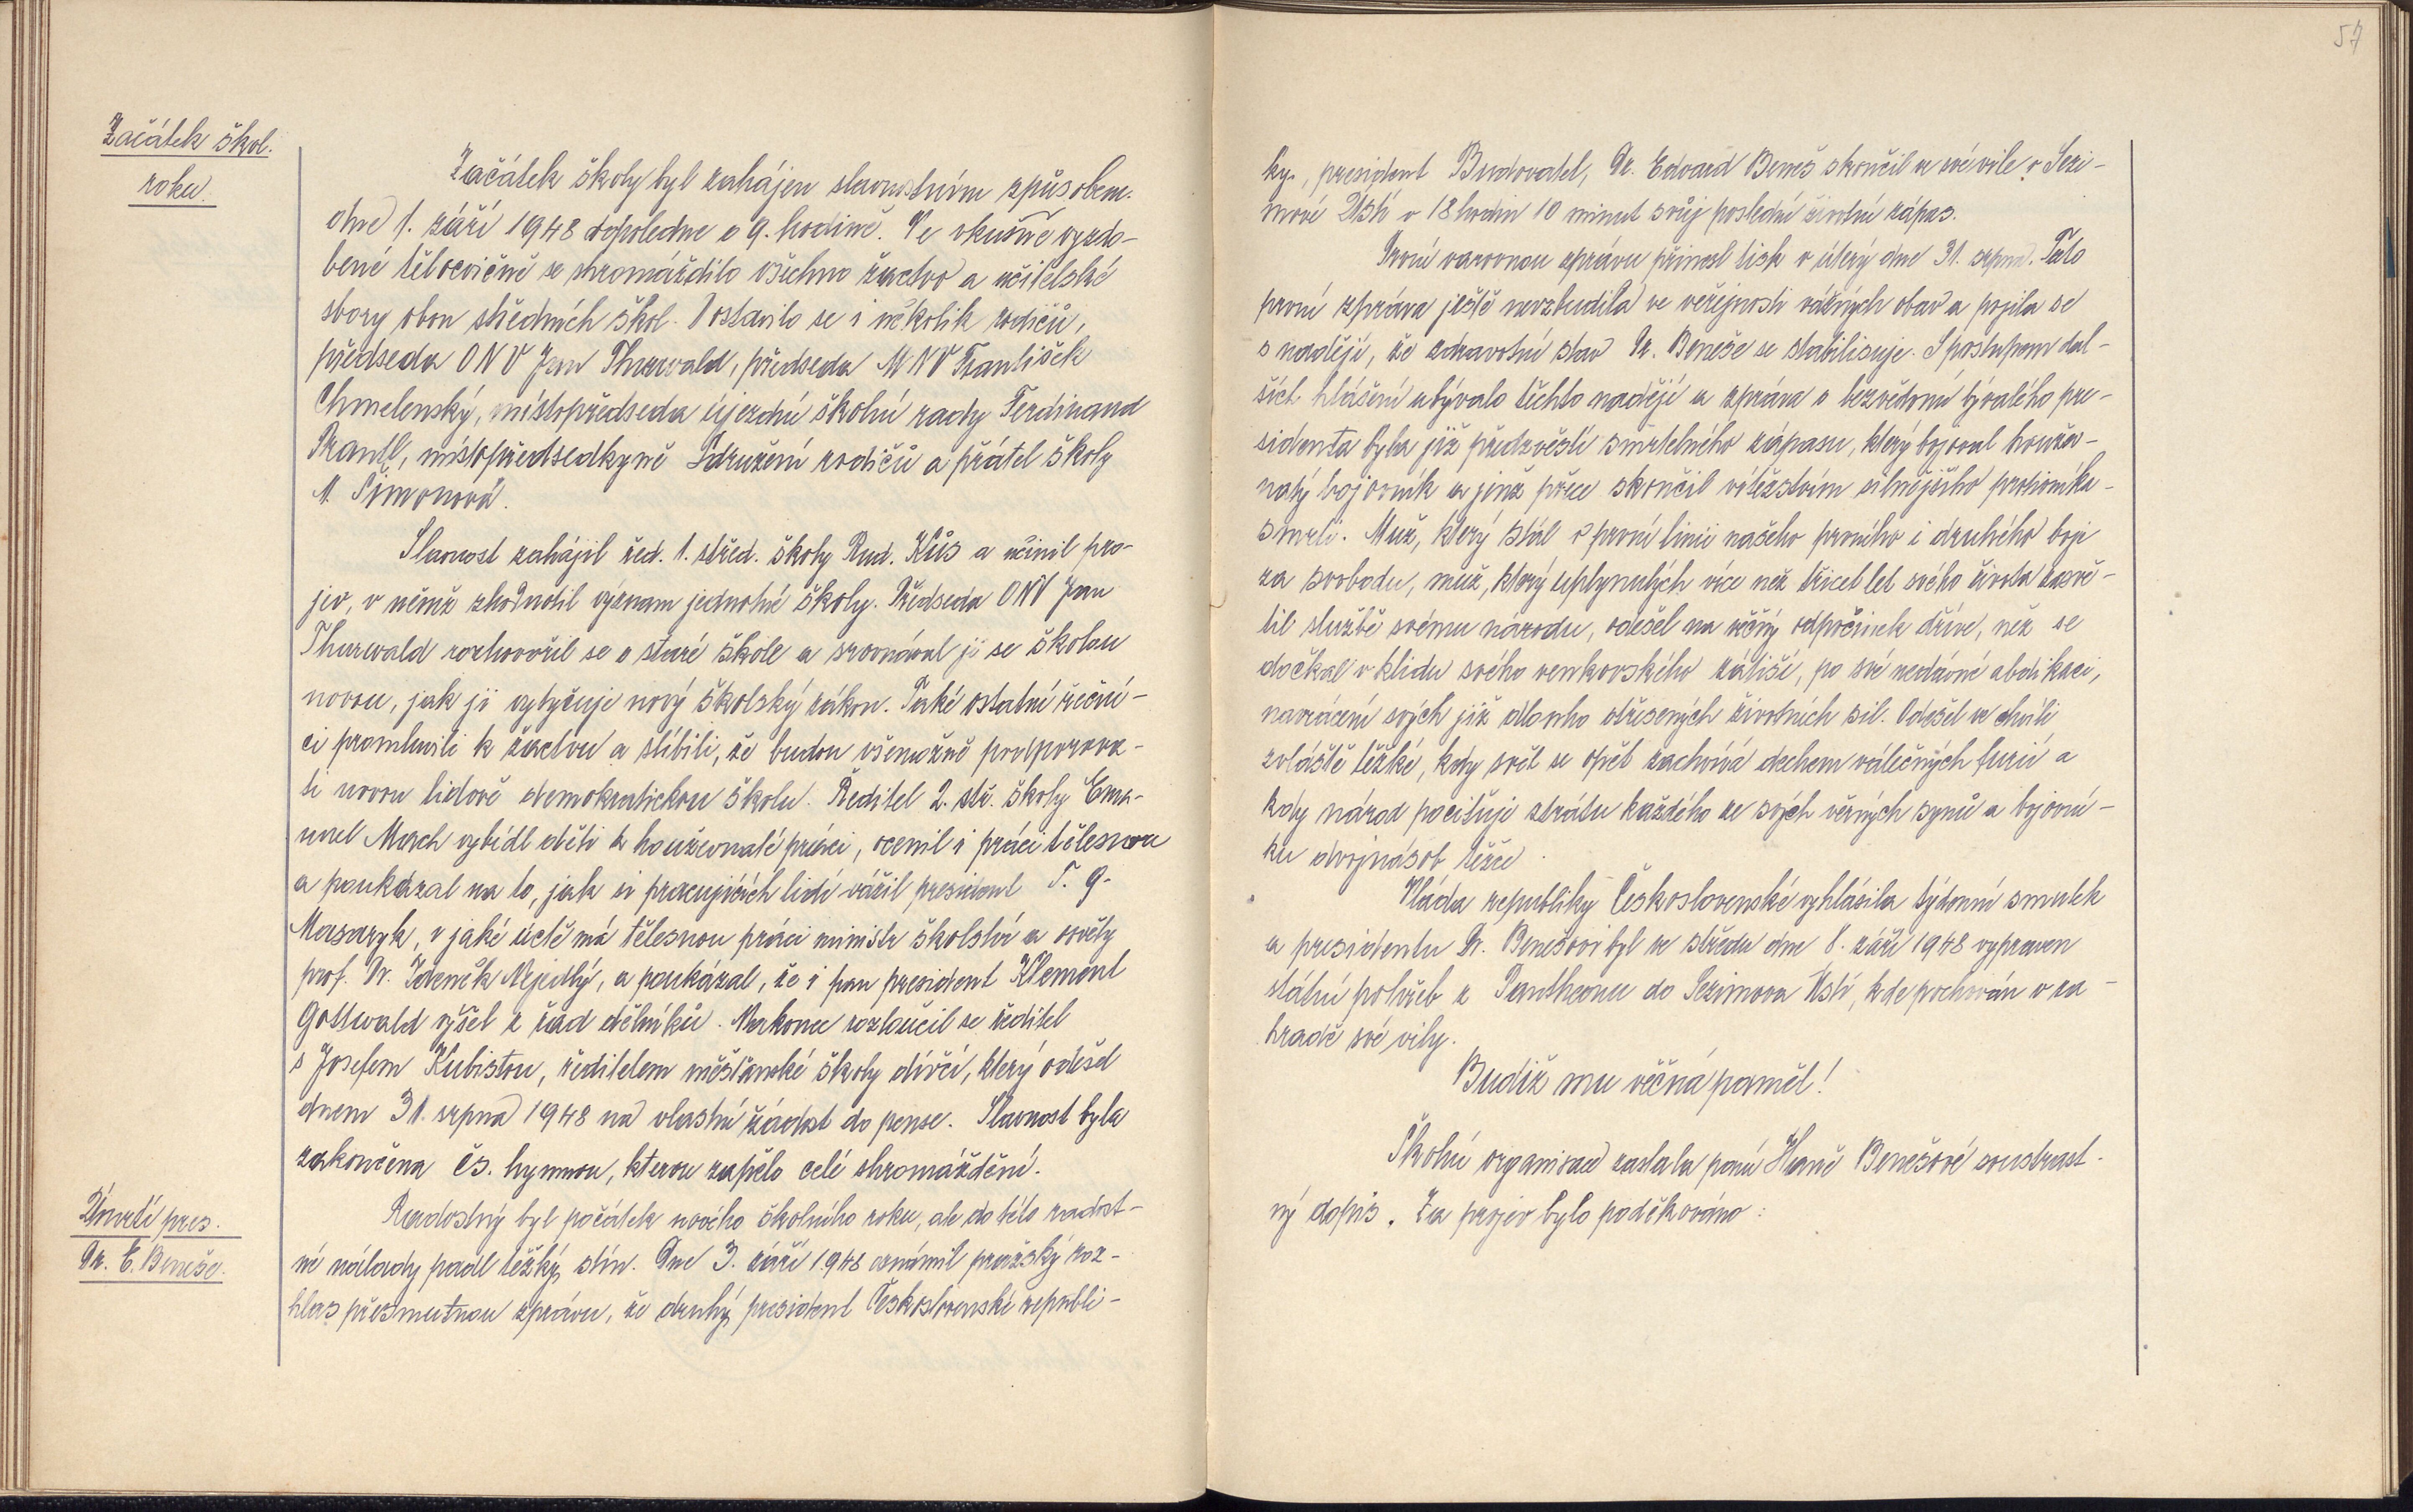 57
Začátek škol.
roku.
Začátek školy byl zahájen slavnostním způsobem.
dne 1. září 1948 dopoledne o 9. hodině. Ve vkusně vyzdo-
bené tělocvičně se shromáždilo všechno žactvo a učitelské
sbory obou středních škol. Dostavilo se i několik rodičů,
předseda ONV Jan Thurwald, předseda MNV František
Chmelenský, místopředseda újezdní školní rady Ferdinand
Prantl, místopředsedkyně Sdružení rodičů a přátel školy
M. Šimonová.
Slavnost zahájil řed. 1. střed. školy Rud. Kůs a učinil pro-
jev, v němž zhodnotil význam jednotné školy. Předseda ONV Jan
Thurwald rozhovořil se o staré škole a srovnával ji se školou
novou, jak ji vytyčuje nový školský zákon. Také ostatní řeční-
ci promluvili k žactvu a slíbili, že budou všemožně podporova-
ti novou lidově demokratickou školu. Ředitel 2. stř. školy Ema-
nuel Mach vybídl děti k houževnaté práci, ocenil i práci tělesnou
a poukázal na to, jak si pracujících lidí vážil president T. G.
Masaryk, v jaké úctě má tělesnou práci ministr školství a osvěty
prof. Dr. Zdeněk Nejedlý, a poukázal, že i pan president Klement
Gottwald vyšel z řad dělníků. Nakonec rozloučil se ředitel
s Josefem Kubištou, ředitelem měšťanské školy dívčí, který odešel
dnem 31. srpna 1948 na vlastní žádost do pense. Slavnost byla
zakončena čs. hymnou, kterou zapělo celé shromáždění.
Úmrtí pres.
Dr. E. Beneše.
Radostný byl počátek nového školního roku, ale do této radost-
né nálady padl těžký stín. Dne 3. září 1948 oznámil pražský roz-
hlas přesmutnou zprávu, že druhý president Československé republi-
ky, president Budovatel, Dr. Edvard Beneš skončil ve své vile v Sezi-
mově Ústí v 18 hodin 10 minut svůj poslední životní zápas.
První varovnou zprávu přinesl tisk v úterý dne 31. srpna. Tato
první zpráva ještě nevzbudila ve veřejnosti vážných obav a pojila se
s nadějí, že zdravotní stav Dr. Beneše se stabilisuje. S postupem dal-
ších hlášení ubývalo těchto nadějí a zpráva o bezvědomí bývalého pre-
sidenta byla již předzvěstí smrtelného zápasu, který bojoval houžev-
natý bojovník a jenž přece skončil vítězstvím silnějšího protivníka -
smrti. Muž, který stál v první linii našeho prvního i druhého boje
za svobodu, muž, který uplynulých více než třicet let svého života zasvě-
til službě svému národu, odešel na věčný odpočinek dříve, než se
dočkal v klidu svého venkovského zátiší, po své nedávné abdikaci,
navrácení svých již dlouho otřesených životních sil. Odešel ve chvíli
zvláště těžké, kdy svět se opět zachvívá dechem válečných furií a
kdy národ pociťuje ztrátu každého ze svých věrných synů a bojovní-
ků dvojnásob těžce.
Vláda republiky Československé vyhlásila týdenní smutek
a presidentu Dr. Benešovi byl ve středu dne 8. září 1948 vypraven
státní pohřeb z Pantheonu do Sezimova Ústí, kde pochován v za-
hradě své vily.
Budiž mu věčná paměť!
Školní organisace zaslala paní Haně Benešové soustrast-
ný dopis. Za projev bylo poděkováno.